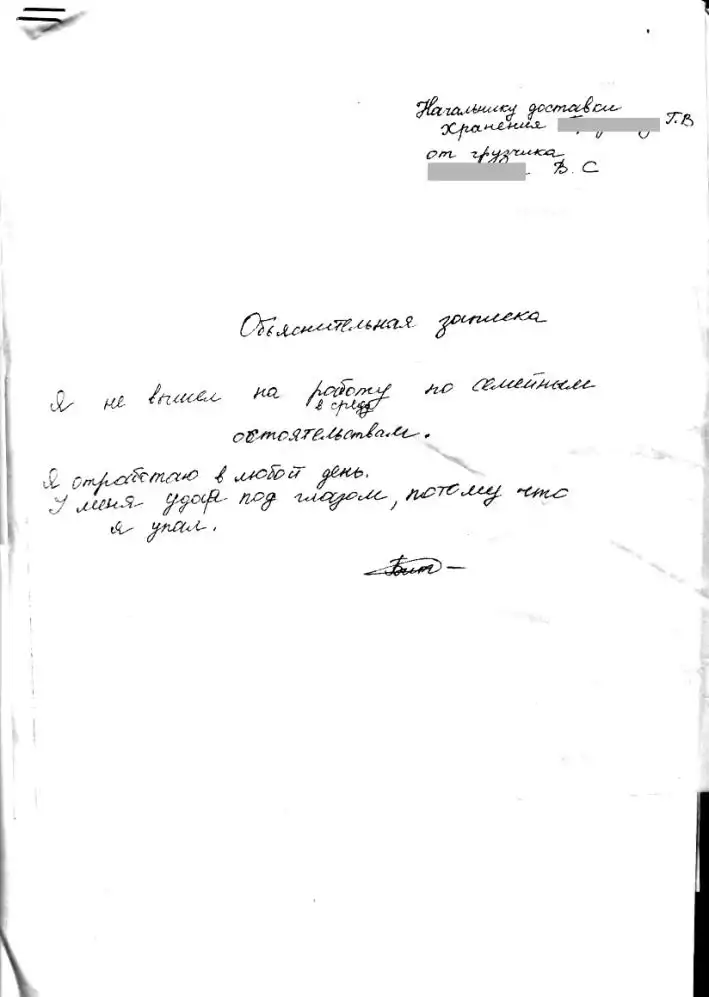 Начальнику доставки
хранения Г.В
от грузчика
В. С
Объяснительная записка
Я не вышел на работу по семейным
в среду
обстоятельствам.
Я отработаю в любой день.
У меня удар под глазом, потому что
я упал.